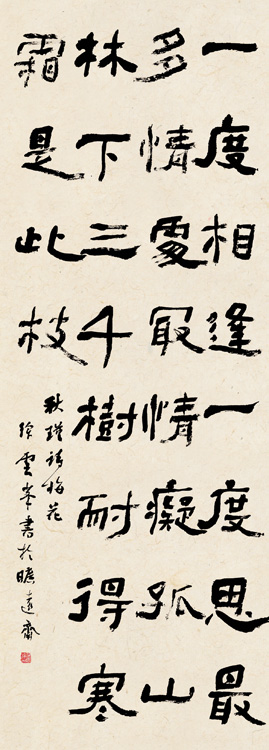 一度相逢一度思最
多情處冣情癡孤山
林下三千樹耐得寒
霜是此枝
秋瑾詩梅花
徐雲峯書於瞻遠齋